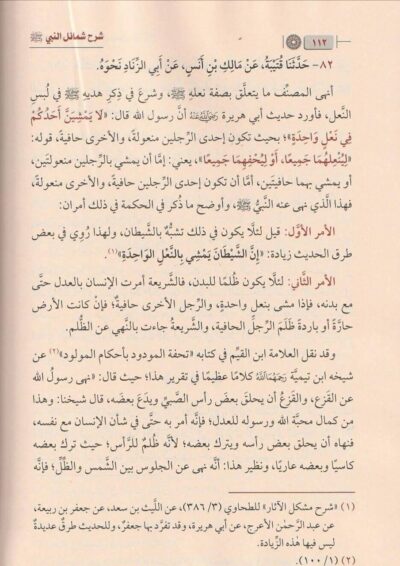 ١١٢
شرح شمائل النبي ﷺ
٨٢- حَدَّثَنَا قُتَيْبَةُ، عَنْ مَالِكِ بْنِ أَنَسٍ، عَنْ أَبِي الزِّنَادِ نَحْوَهُ.
أنهى المصنِّف ما يتعلَّق بصفة نعلِه ﷺ، وشرعَ في ذِكرِ هديِه ﷺ في لُبسِ
النَّعل، فأورد حديث أبي هريرة رَضِيَ اللَّهُ عَنْهُ أنَّ رسول الله قال: «لا يَمْشِيَنَّ أَحَدُكُمْ
فِي نَعْلٍ وَاحِدَةٍ»؛ بحيث تكون إحدى الرِّجلين منعولةً، والأخرى حافيةً، قوله:
«لِيُنْعِلْهُمَا جَمِيعًا، أَوْ لِيُحْفِهِمَا جَمِيعًا»، يعني: إمَّا أن يمشي بالرِّجلين منعولتَين،
أو يمشي بهما حافيتَين، أمَّا أن تكون إحدى الرِّجلين حافيةً، والأخرى منعولةً،
فهذا الَّذي نهى عنه النَّبيُّ ﷺ، وأوضح ما ذُكر في الحكمة في ذلك أمران:
الأمر الأوَّل: قيل لئلَّا يكون في ذلك تشبُّهٌ بالشَّيطان، ولهذا رُوِي في بعض
طرق الحديث زيادة: «إِنَّ الشَّيْطَانَ يَمْشِي بِالنَّعْلِ الوَاحِدَةِ»(١).
الأمر الثَّاني: لئلَّا يكون ظُلمًا للبدن، فالشَّريعة أمرت الإنسان بالعدل حتَّى
مع بدنه، فإذا مشى بنعل واحدةٍ، والرِّجل الأخرى حافيةٌ؛ فإنْ كانت الأرض
حارَّةً أو باردةً ظَلَمَ الرِّجلَ الحافية، والشَّريعةُ جاءت بالنَّهي عن الظُّلم.
وقد نقل العلامة ابن القيِّم في كتابه «تحفة المودود بأحكام المولود»(٢) عن
شيخه ابن تيميَّة رَحِمَهُ اللَّهُ كلامًا عظيمًا في تقرير هذا؛ حيث قال: «نهى رسولُ الله
عن القزَع، والقَزَعُ أن يحلقَ بعضَ رأس الصَّبيِّ ويدَعَ بعضَه، قال شيخنا: وهذا
من كمال محبَّة الله ورسوله للعدل؛ فإنَّه أمر به حتَّى في شأن الإنسان مع نفسه،
فنهاه أن يحلق بعض رأسه ويترك بعضه؛ لأنَّه ظُلمٌ للرَّأس؛ حيث ترك بعضه
كاسيًا وبعضه عاريًا، ونظير هذا: أنَّه نهى عن الجلوس بين الشَّمس والظِّلِّ؛ فإنَّه
(١) «شرح مشكل الآثار» للطحاوي (٣/ ٣٨٦)، عن اللَّيث بن سعد، عن جعفر بن ربيعة،
عن عبد الرَّحمٰن الأعرج، عن أبي هريرة، وقد تفرَّد بها جعفرٌ، وللحديث طرقٌ عديدةٌ
ليس فيها هٰذه الزِّيادة.
(٢) (١/ ١٠٠).